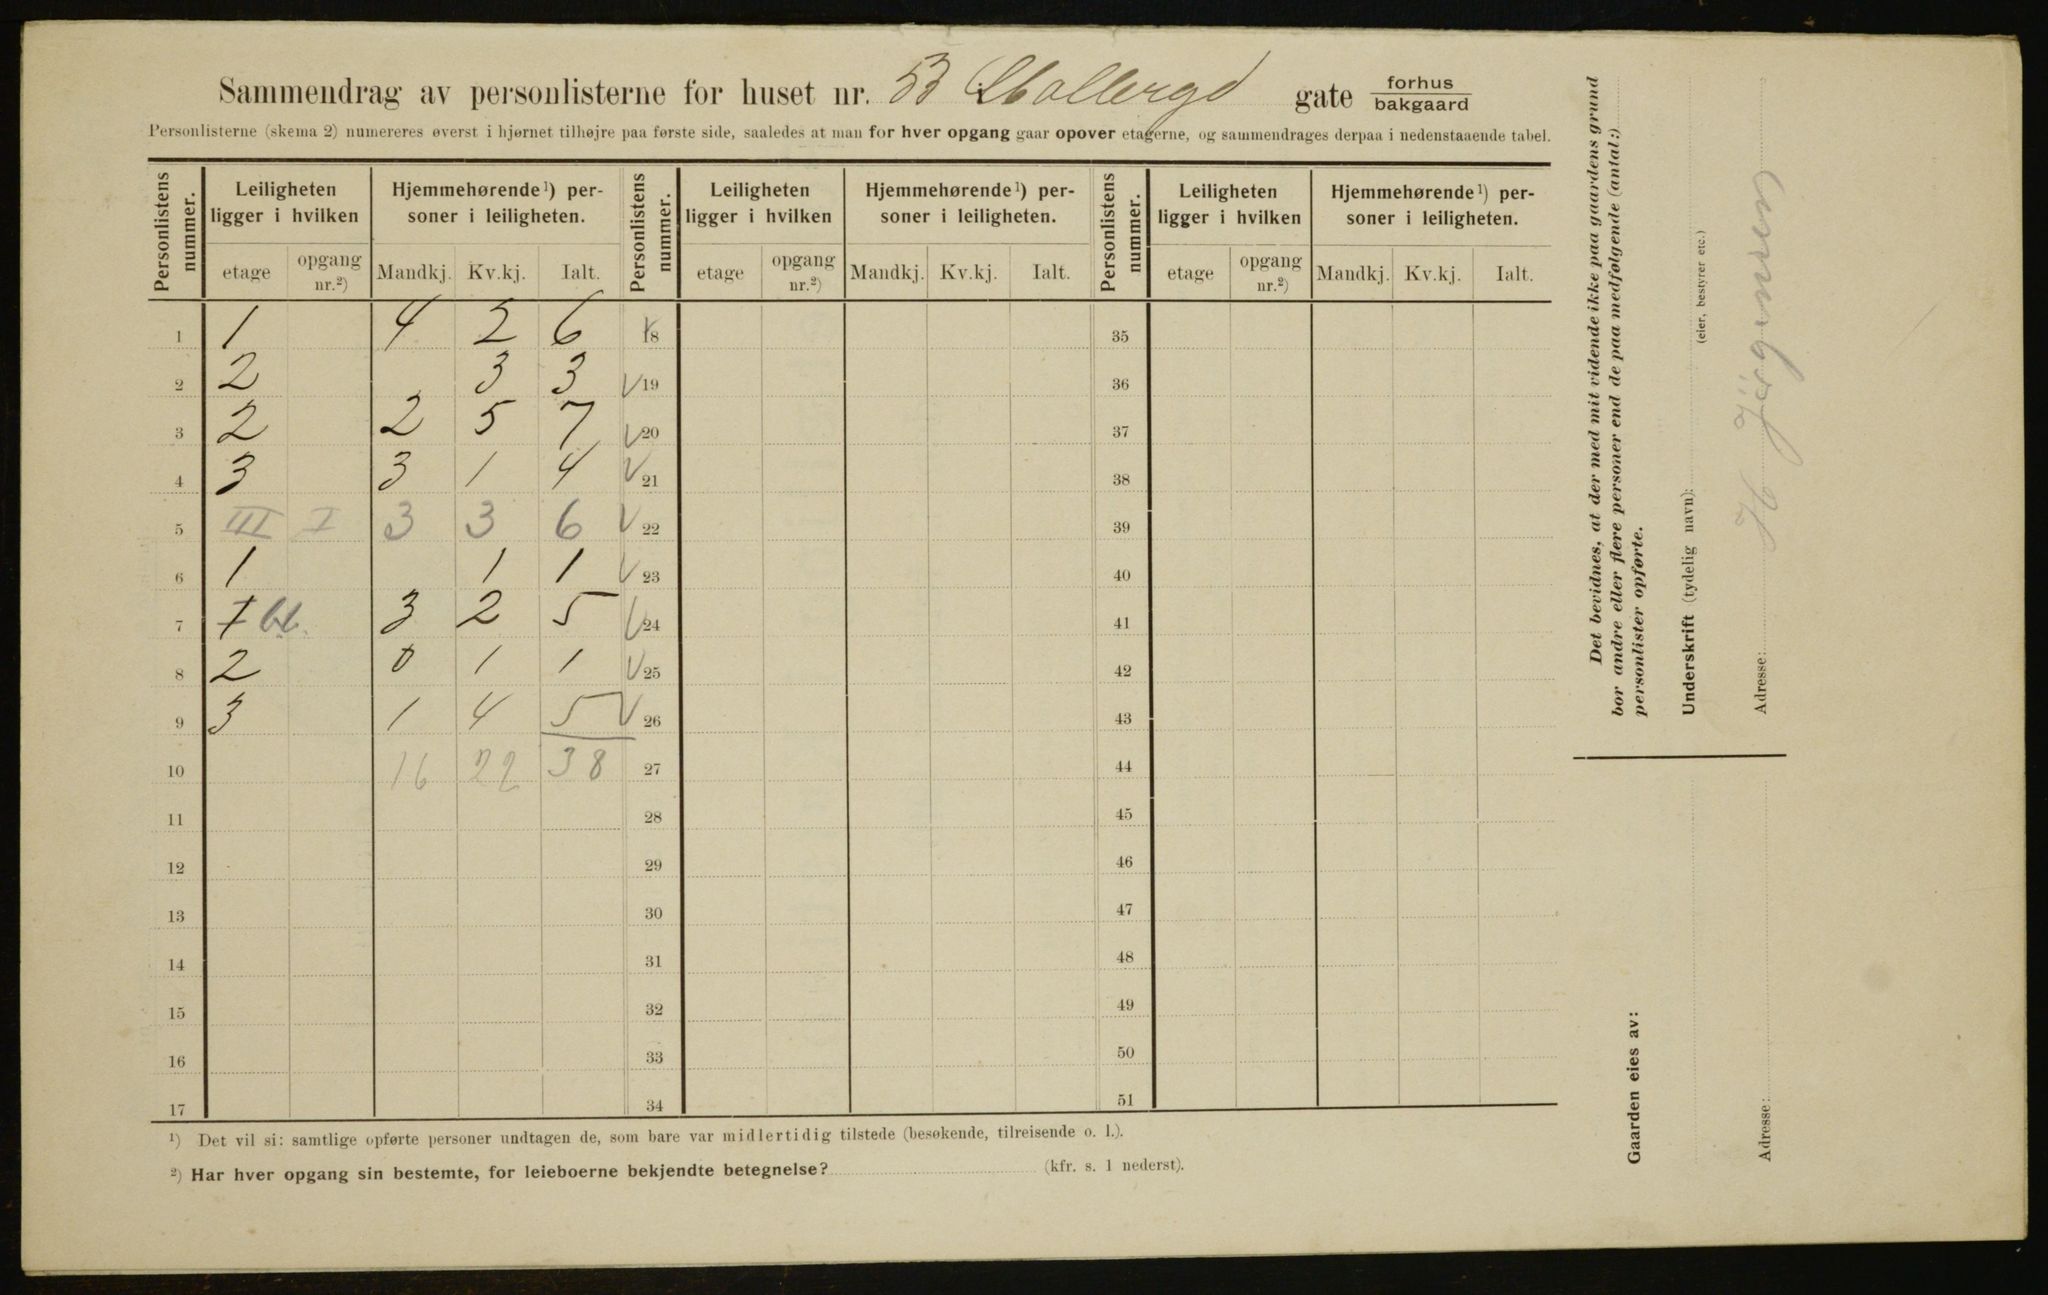 Sammendrag av personlisterne for huset nr. 53 Mollergd gate forhus / bakgaard
Personlisterne (skema 2) numereres øverst i hjørnet tilhøjre paa første side, saaledes at man for hver opgang gaar opover etagerne, og sammendrages derpaa i nedenstaaende tabel.
Personlistens nummer. Leiligheten ligger i hvilken Hjemmehørende¹) personer i leiligheten. Personlistens nummer. Leiligheten ligger i hvilken Hjemmehørende¹) personer i leiligheten. Personlistens nummer. Leiligheten ligger i hvilken Hjemmehørende¹) personer i leiligheten.
etage opgang nr.²) Mandkj. Kv.kj. Ialt. etage opgang nr.²) Mandkj. Kv.kj. Ialt. etage opgang nr.²) Mandkj. Kv.kj. Ialt.
1 1 4 2 6 18 35
2 2 3 3 19 36
3 2 2 5 7 20 37
4 3 3 1 4 21 38
5 III I 3 3 6 22 39
6 1 1 1 23 40
7 I 3 2 5 24 41
8 2 0 1 1 25 42
9 3 1 4 5 26 43
10 16 22 38 27 44
11 28 45
12 29 46
13 30 47
14 31 48
15 32 49
16 33 50
17 34 51
¹) Det vil si: samtlige opførte personer undtagen de, som bare var midlertidig tilstede (besøkende, tilreisende o. l.).
²) Har hver opgang sin bestemte, for leieboerne bekjendte betegnelse? (kfr. s. 1 nederst).
Det bevidnes, at der med mit vidende ikke paa gaardens grund
bor andre eller flere personer end de paa medfølgende (antal:)
personlister opførte.
Underskrift (tydelig navn):
(eier, bestyrer etc.)
H Jörgensen
Adresse:
Gaarden eies av:
Adresse: